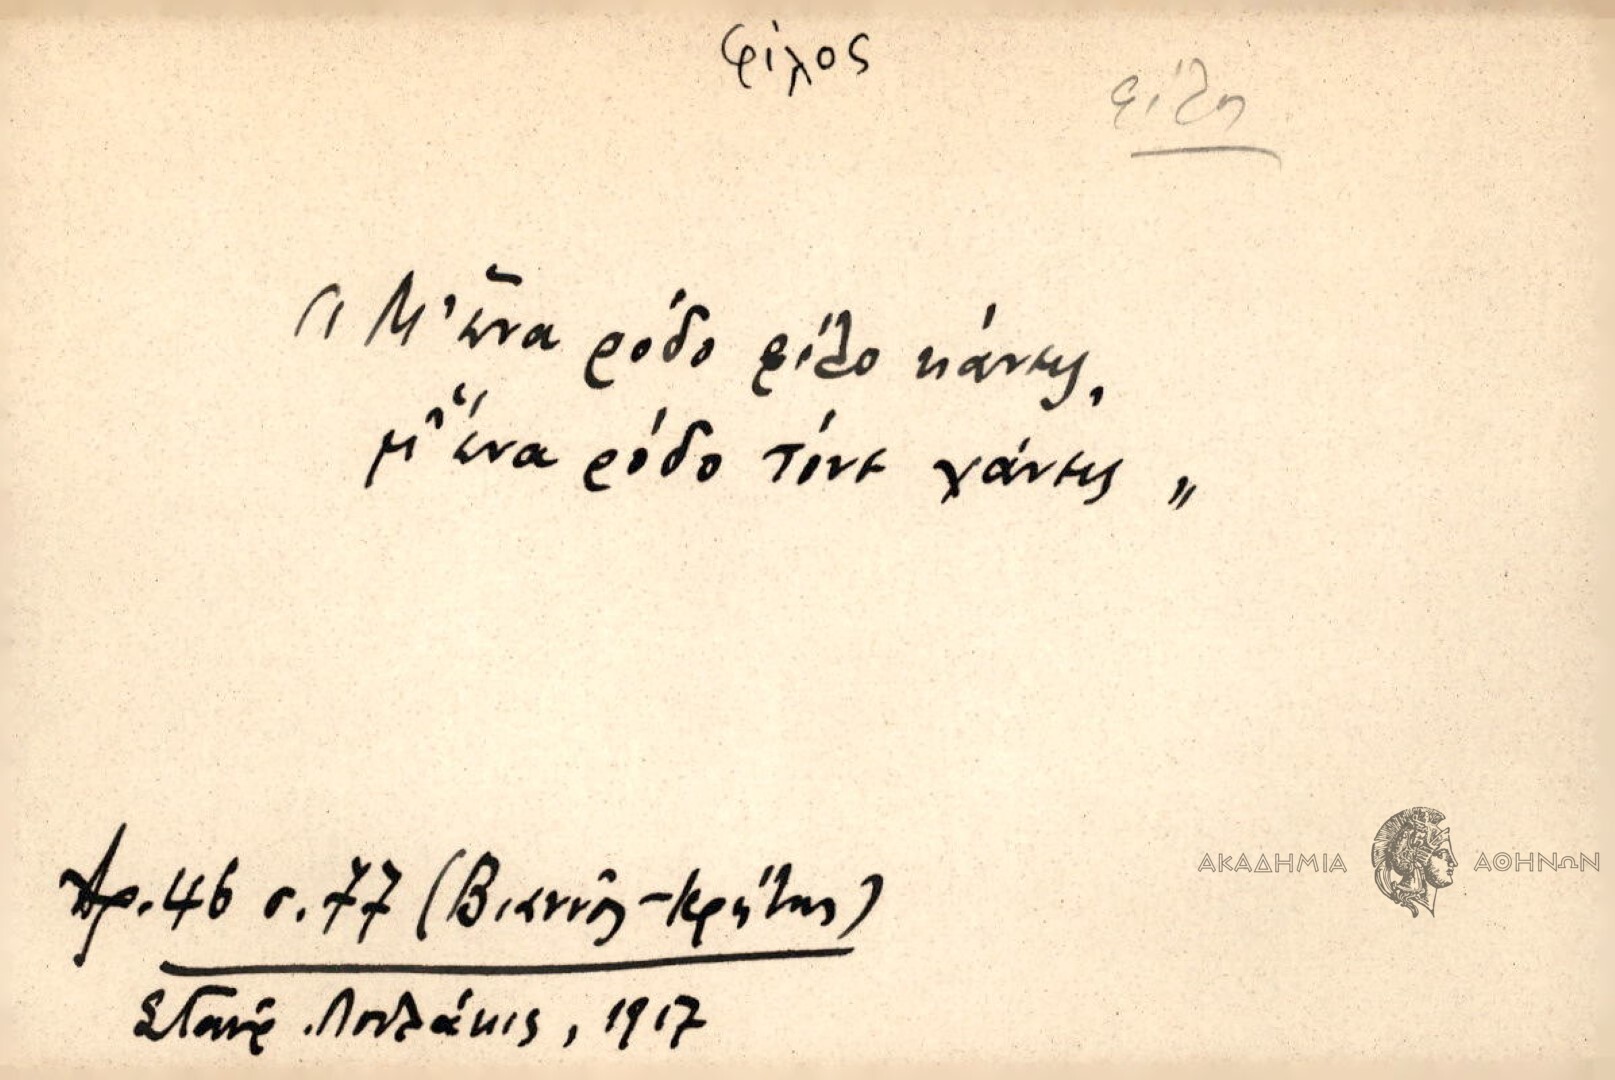 φίλος
φίλη
"Μ' ἕνα ρόδο φίλο κάνεις,
μ' ἕνα ρόδο τόνε χάνεις"
ΑΚΑΔΗΜΙΑ ΑΘΗΝΩΝ
Αρ. 46 σ. 77 (Βιαννός-Κρήτης)
Σταύρ. Λουλάκις, 1917